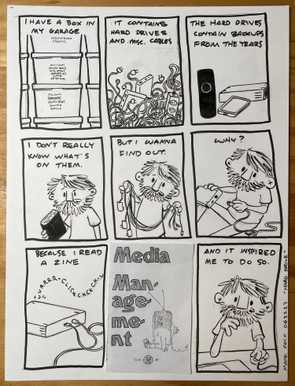 I HAVE A BOX IN
MY GARAGE
IT CONTAINS
HARD DRIVES
AND MISC. CABLES
THE HARD DRIVES
CONTAIN BACKUPS
FROM THE YEARS
I DON'T REALLY
KNOW WHAT'S
ON THEM.
BUT I WANNA
FIND OUT.
WHY?
BECAUSE I READ
A ZINE
Media
Man-
age-
ment
AND IT INSPIRED
ME TO DO SO.